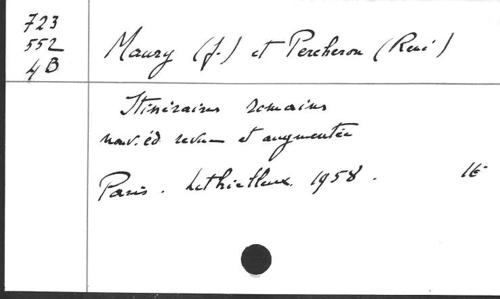 723
552
4B
Maury (J.) et Percheron (René)
Itinéraires romains
nouv. éd revue et augmentée
Paris. Lethielleux. 1958.